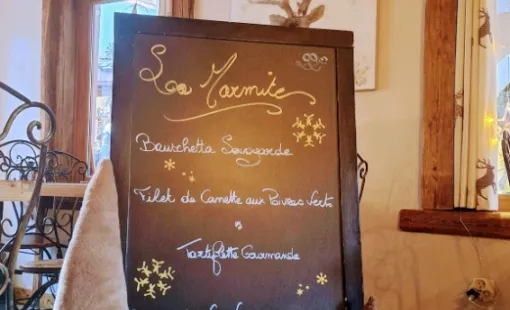 La Marmite
Bruschetta Savoyarde
Filet de Canette aux Poivres Verts
Tartiflette Gourmande